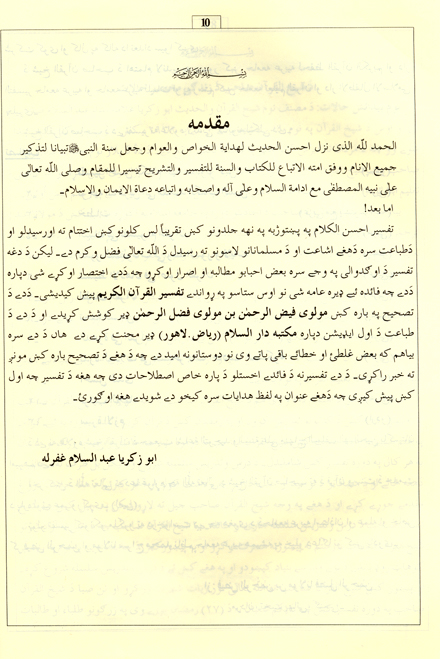 10
بسم الله الرحمن الرحیم
مقدمه
الحمد لله الذی نزل احسن الحدیث لهدایة الخواص والعوام وجعل سنة النبیﷺ تبیانا لتذکیر
جمیع الانام ووفق امته الاتباع للکتاب والسنة للتفسیر والتشریح تیسیرا للمقام وصلی الله تعالٰی
علٰی نبیه المصطفٰی مع ادامة السلام وعلی آله واصحابه واتباعه دعاة الایمان والاسلام۔
اما بعد!
تفسیر احسن الکلام په پښتوژبه په نهه جلدونو کښ تقریباً لس کلونوکښ اختتام ته اورسیدلو او
دَطباعت سره دَهغے اشاعت او دَ مسلمانانو لاسونو ته رسیدل دَ الله تعالٰی فضل وکرم دے۔ لیکن دَغه
تفسیر دَ اوګدوالی په وجے سره بعض احبابو مطالبه او اصرار اوکړو چه دَدے اختصار اوکړے شی دپاره
دَدے چه فائده ئے ډیره عامه شی نو اوس ستاسو په رواندے تفسیر القرآن الکریم پیش کیدیشی۔ دَدے دَ
تصحیح په باره کښ مولوی فیض الرحمٰن بن مولوی فضل الرحمٰن ډیر کوشش کړیدے او دَ دے دَ
طباعت دَ اول ایډیشن دپاره مکتبه دار السلام (ریاض، لاهور) ډیر محنت کړے دے هاں دَ دے سره
بیاهم که بعض غلطئ او خطائے باقی پاتے وی نو دوستانونه امید دے چه دَ هغے دَ تصحیح باره کښ مونږ
ته خبر راکړی۔ دَ دے تفسیرنه دَ فائدے اخستلو دَ پاره خاص اصطلاحات دی چه هغه دَ تفسیر چه اول
کښ پیش کیږی چه دَهغے عنوان په لفظ هدایات سره کیخو دے شویدے هغه او ګورئ۔
ابو زکریا عبد السلام غفرله